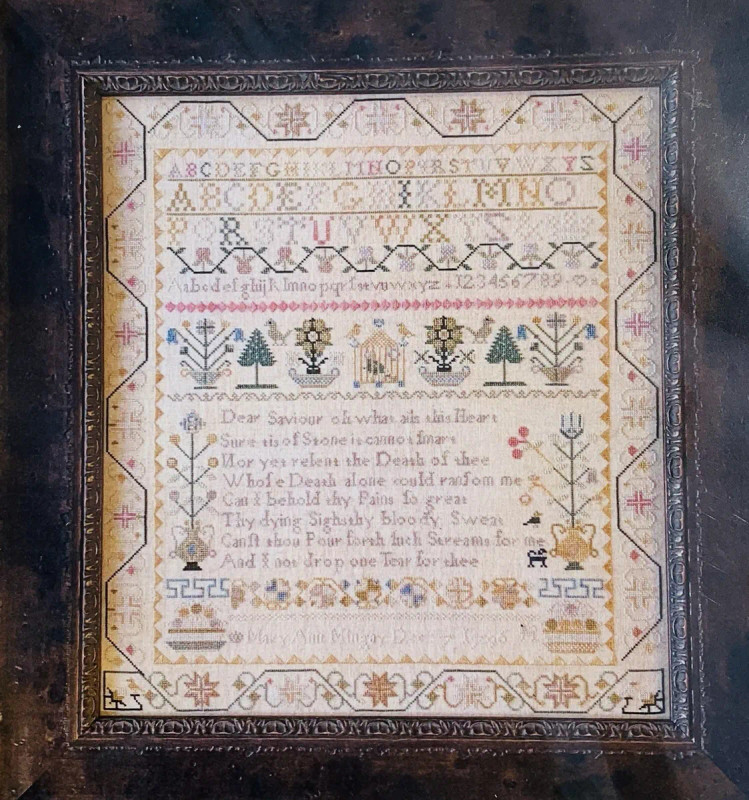 ABCDEFGHIJKLMNOPQRSTUVWXYZ
ABCDEFGHIJKLMNO
PQRSTUVWXYZ
Aabcdefghijklmnopqrſstuvwxyz 123456789
Dear Saviour oh what ails this Heart
Sure tis of Stone it cannot ſmart
Nor yet relent the Death of thee
Whoſe Death alone could ranſom me
Can I behold thy Pains ſo great
Thy dying Sighs thy bloody Sweat
Canſt thou Pour forth ſuch Streams for me
And I not drop one Tear for thee
Mary Ann